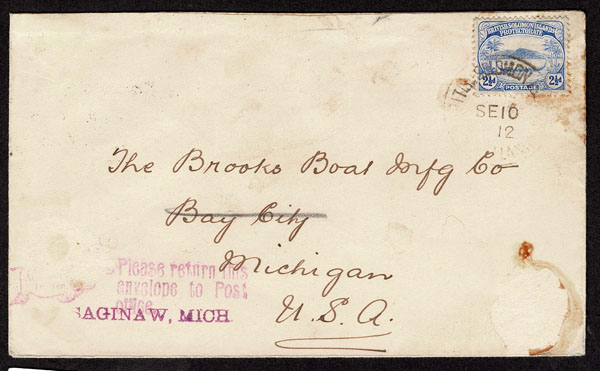 BRITISH SOLOMON ISLANDS
PROTECTORATE
2½d POSTAGE 2½d
SE 10
12
The Brooks Boat Mfg Co
Bay City
Michigan
U.S.A.
Please return this
envelope to Post
office
SAGINAW, MICH.